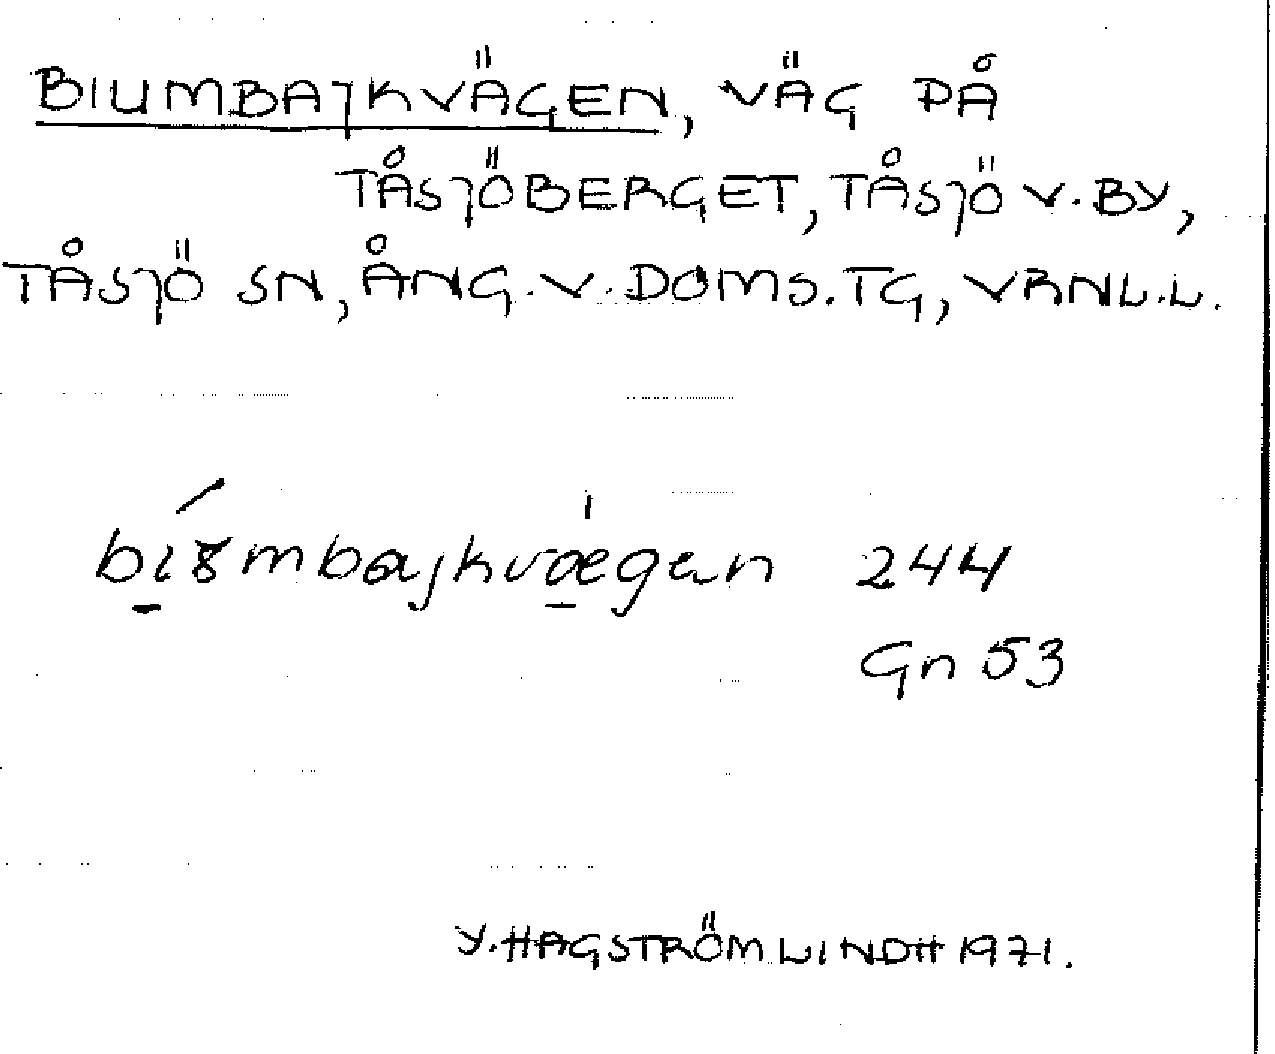 BIUMBAJKVÄGEN, VÄG PÅ
TÅSJÖBERGET, TÅSJÖ V. BY,
TÅSJÖ SN, ÅNG. V. DOMS. TG, VRNL. L.
244
Gn 53
Y. HAGSTRÖM LINDH 1971.